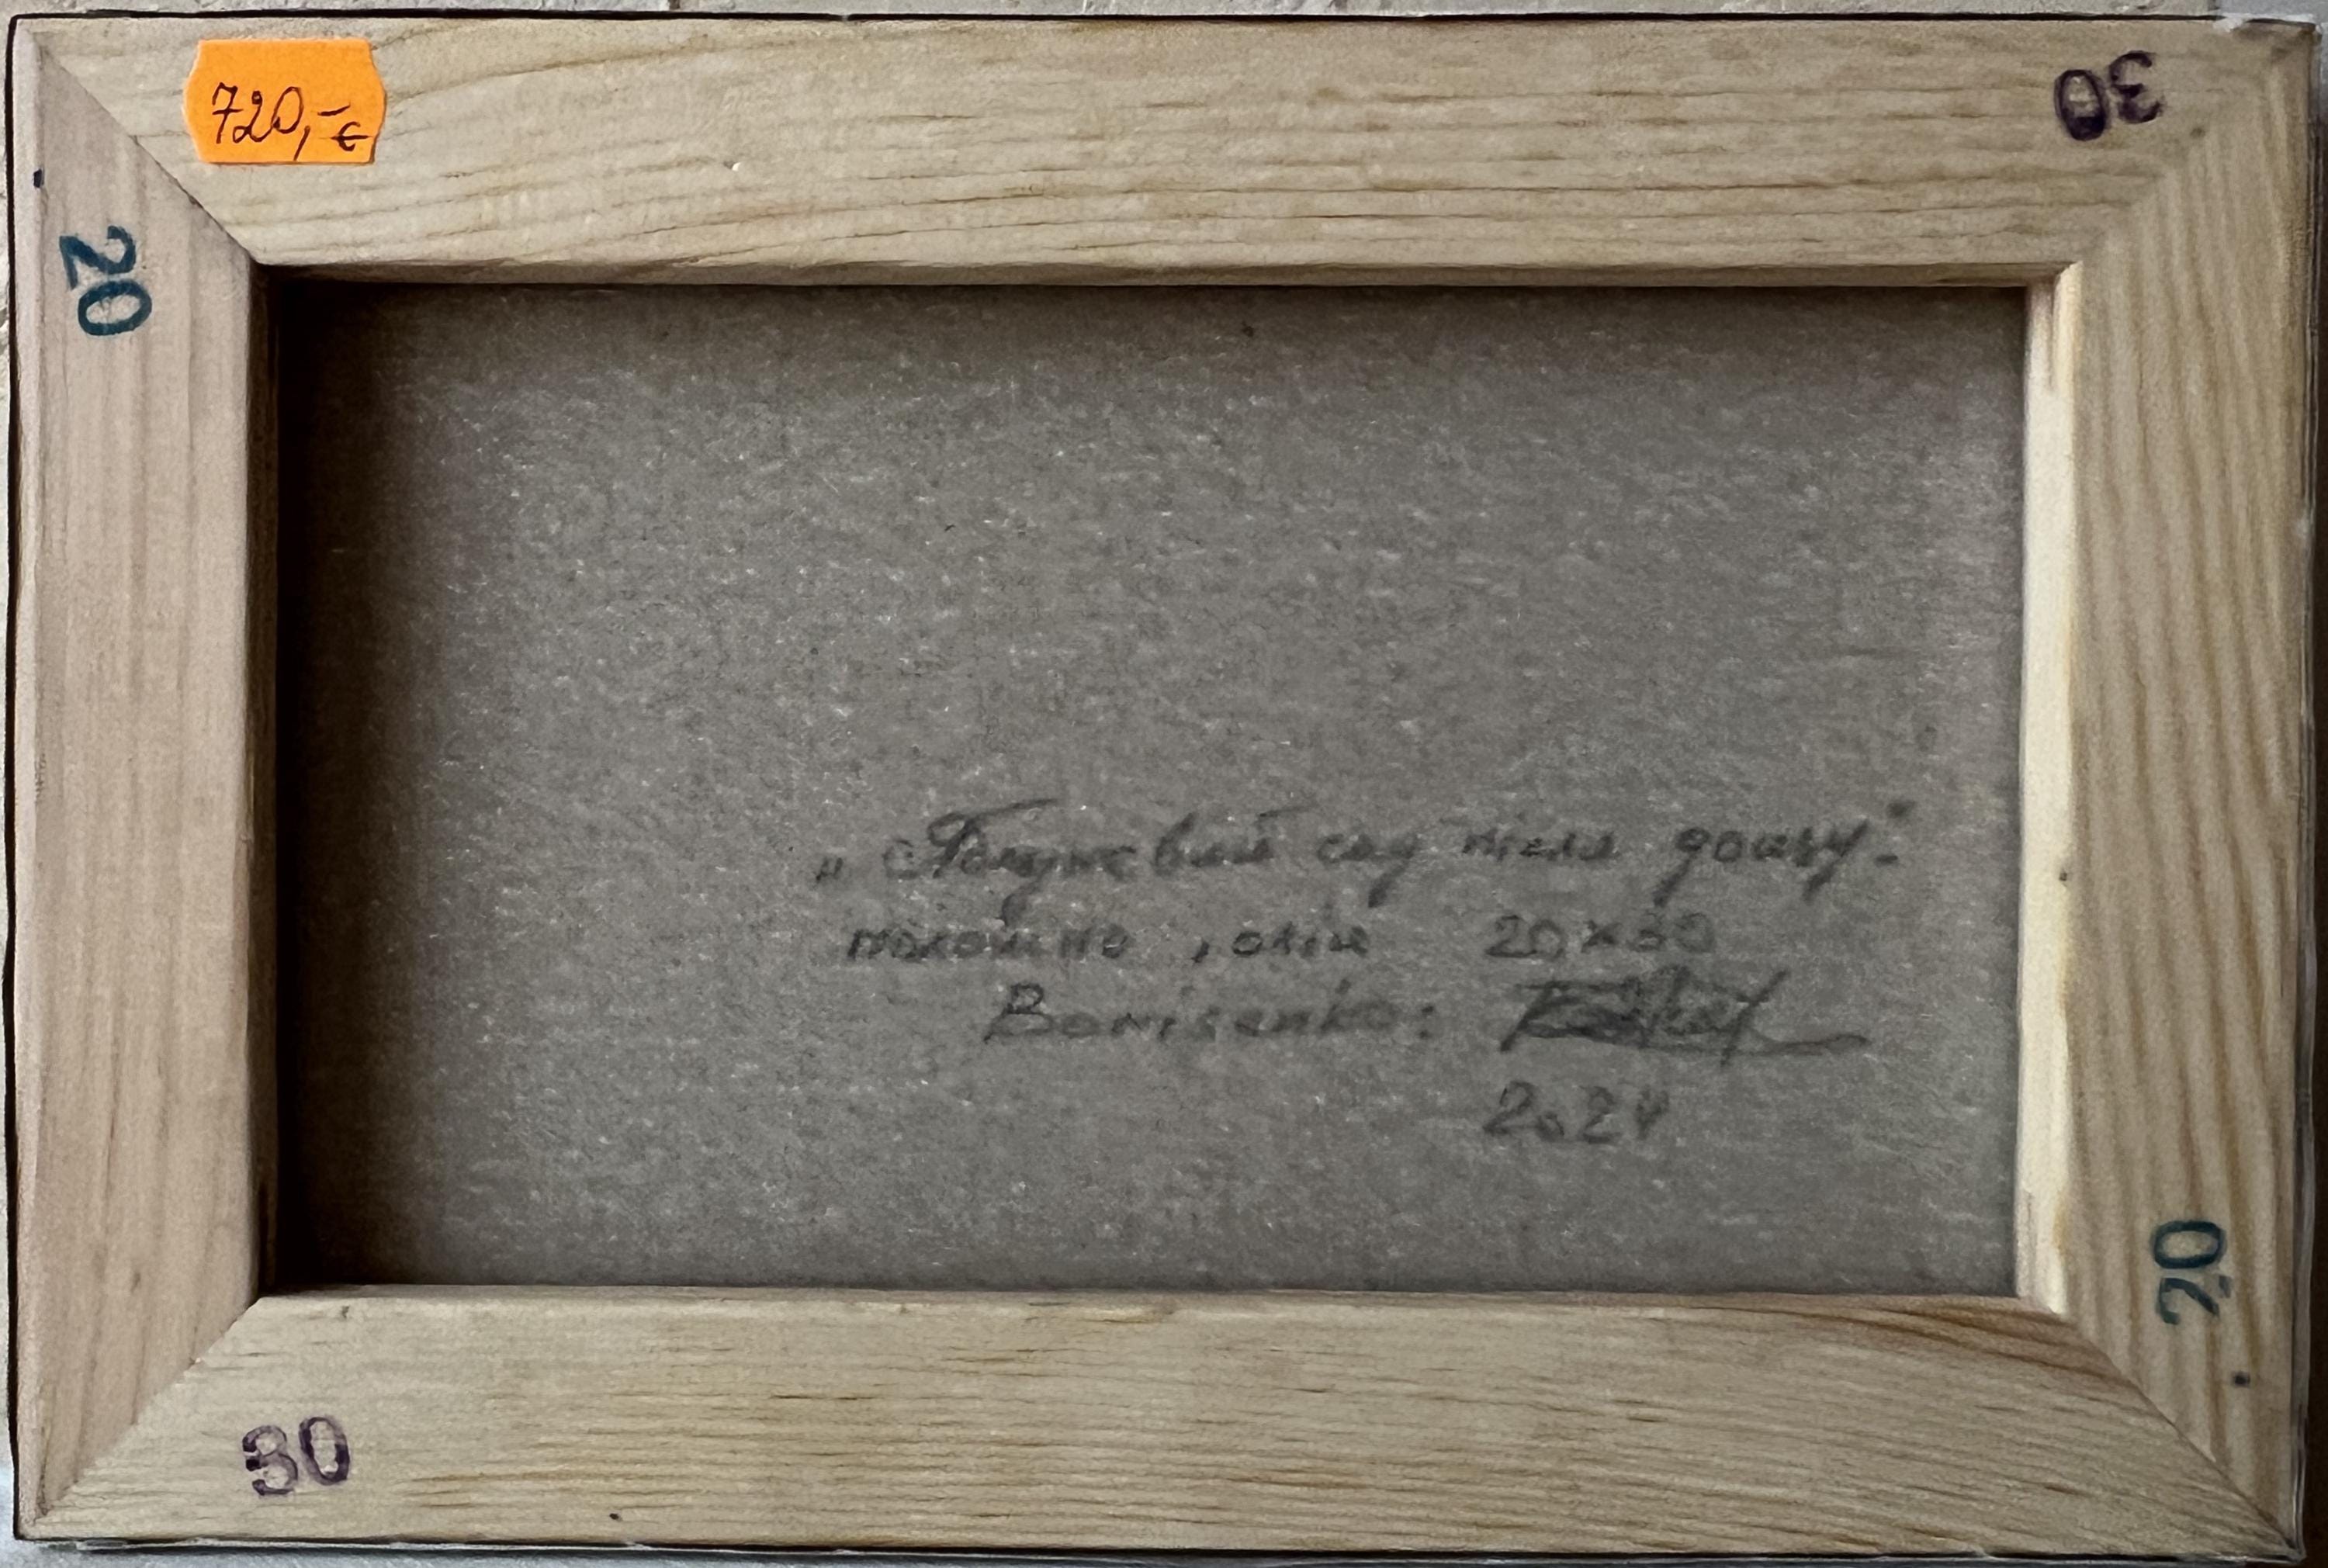 720,-€
30
20
" сад після дощу"
полотно, олія 20x30
Borisenko:
2024
20
30